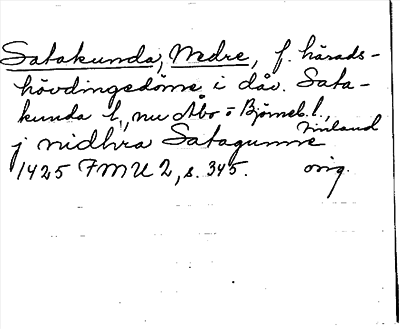 Satakunda, Nedre, f. härads-
hövdingedöme i dåv. Sata-
kunda l., nu Åbo o Björneb. l.,
Finland
j nidhra Satagunne
1425 FMU 2, s. 345. orig.